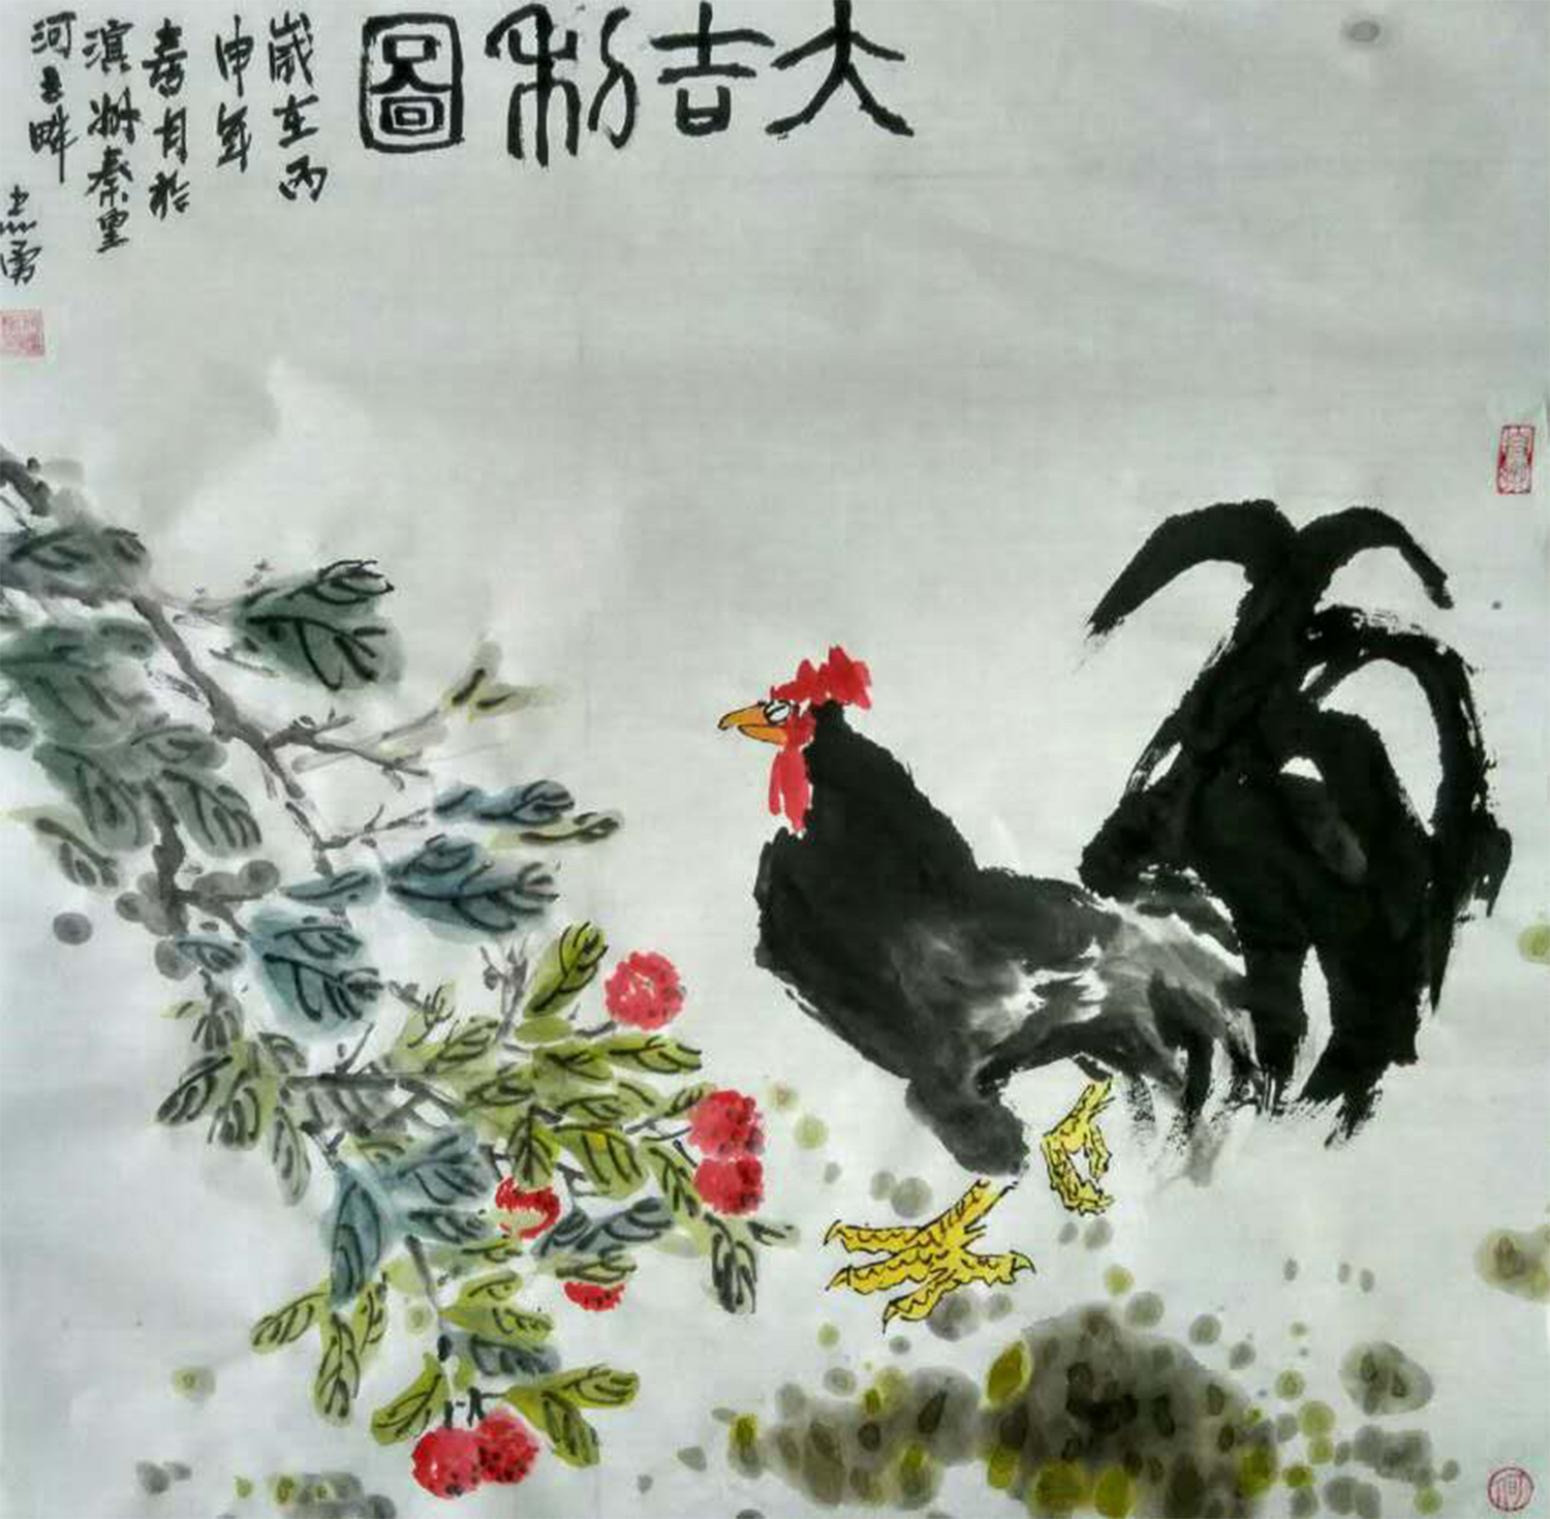 大吉利圖
歲在丙
申年
春月於
濱州秦皇
河之畔